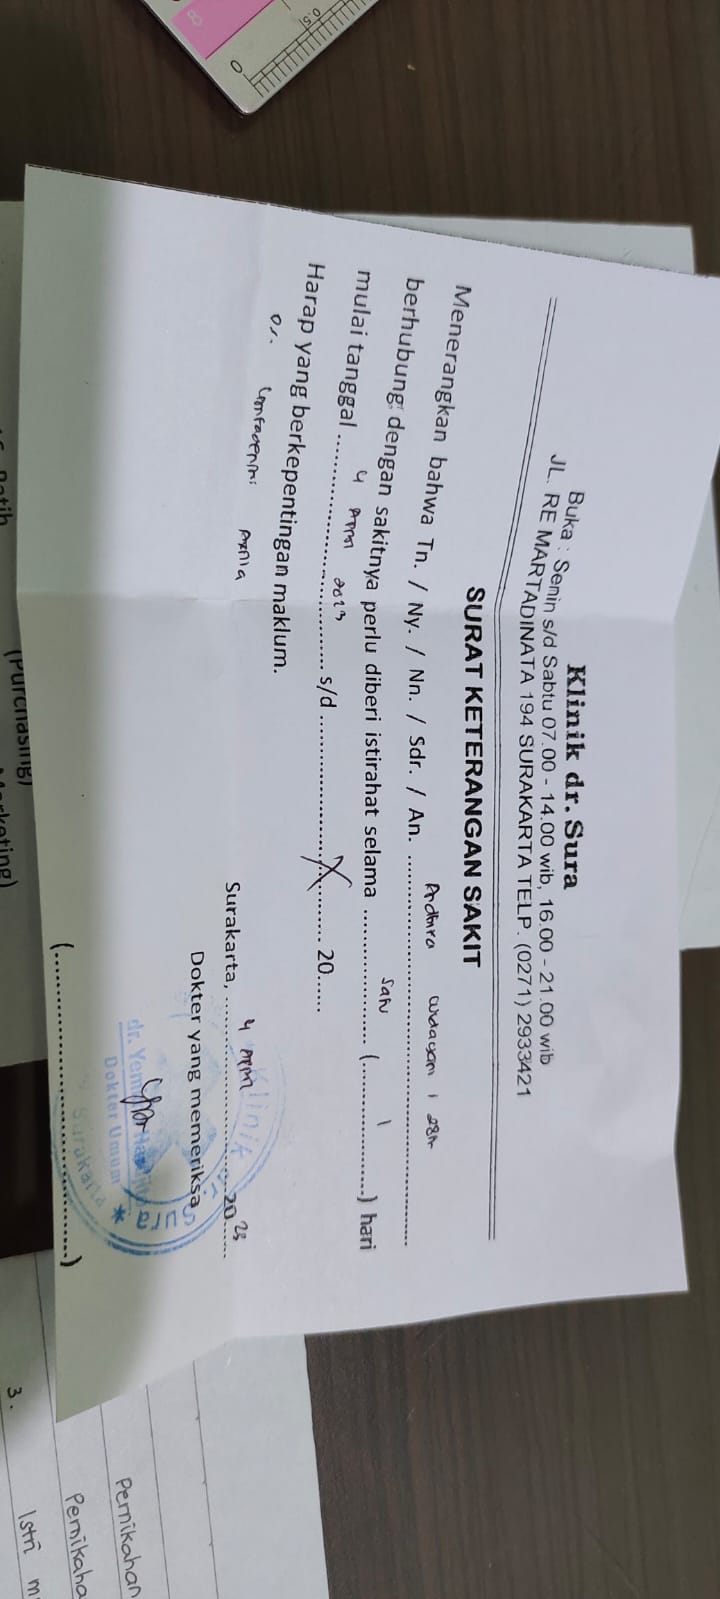 Klinik dr. Sura
Buka : Senin s/d Sabtu 07.00 - 14.00 wib, 16.00 - 21.00 wib
JL. RE MARTADINATA 194 SURAKARTA TELP. (0271) 2933421
SURAT KETERANGAN SAKIT
Menerangkan bahwa Tn. / Ny. / Nn. / Sdr. / An. Andhira 28th
berhubung dengan sakitnya perlu diberi istirahat selama satu (1) hari
mulai tanggal 4 April 2023 s/d 20
Harap yang berkepentingan maklum.
Surakarta, 4 April 2023
Dokter yang memeriksa
Klinik
dr.
Dokter Umum
Sura
Surakarta
(Purchasing)
Marketing)
3.
Istri
Pernikahan
8
0